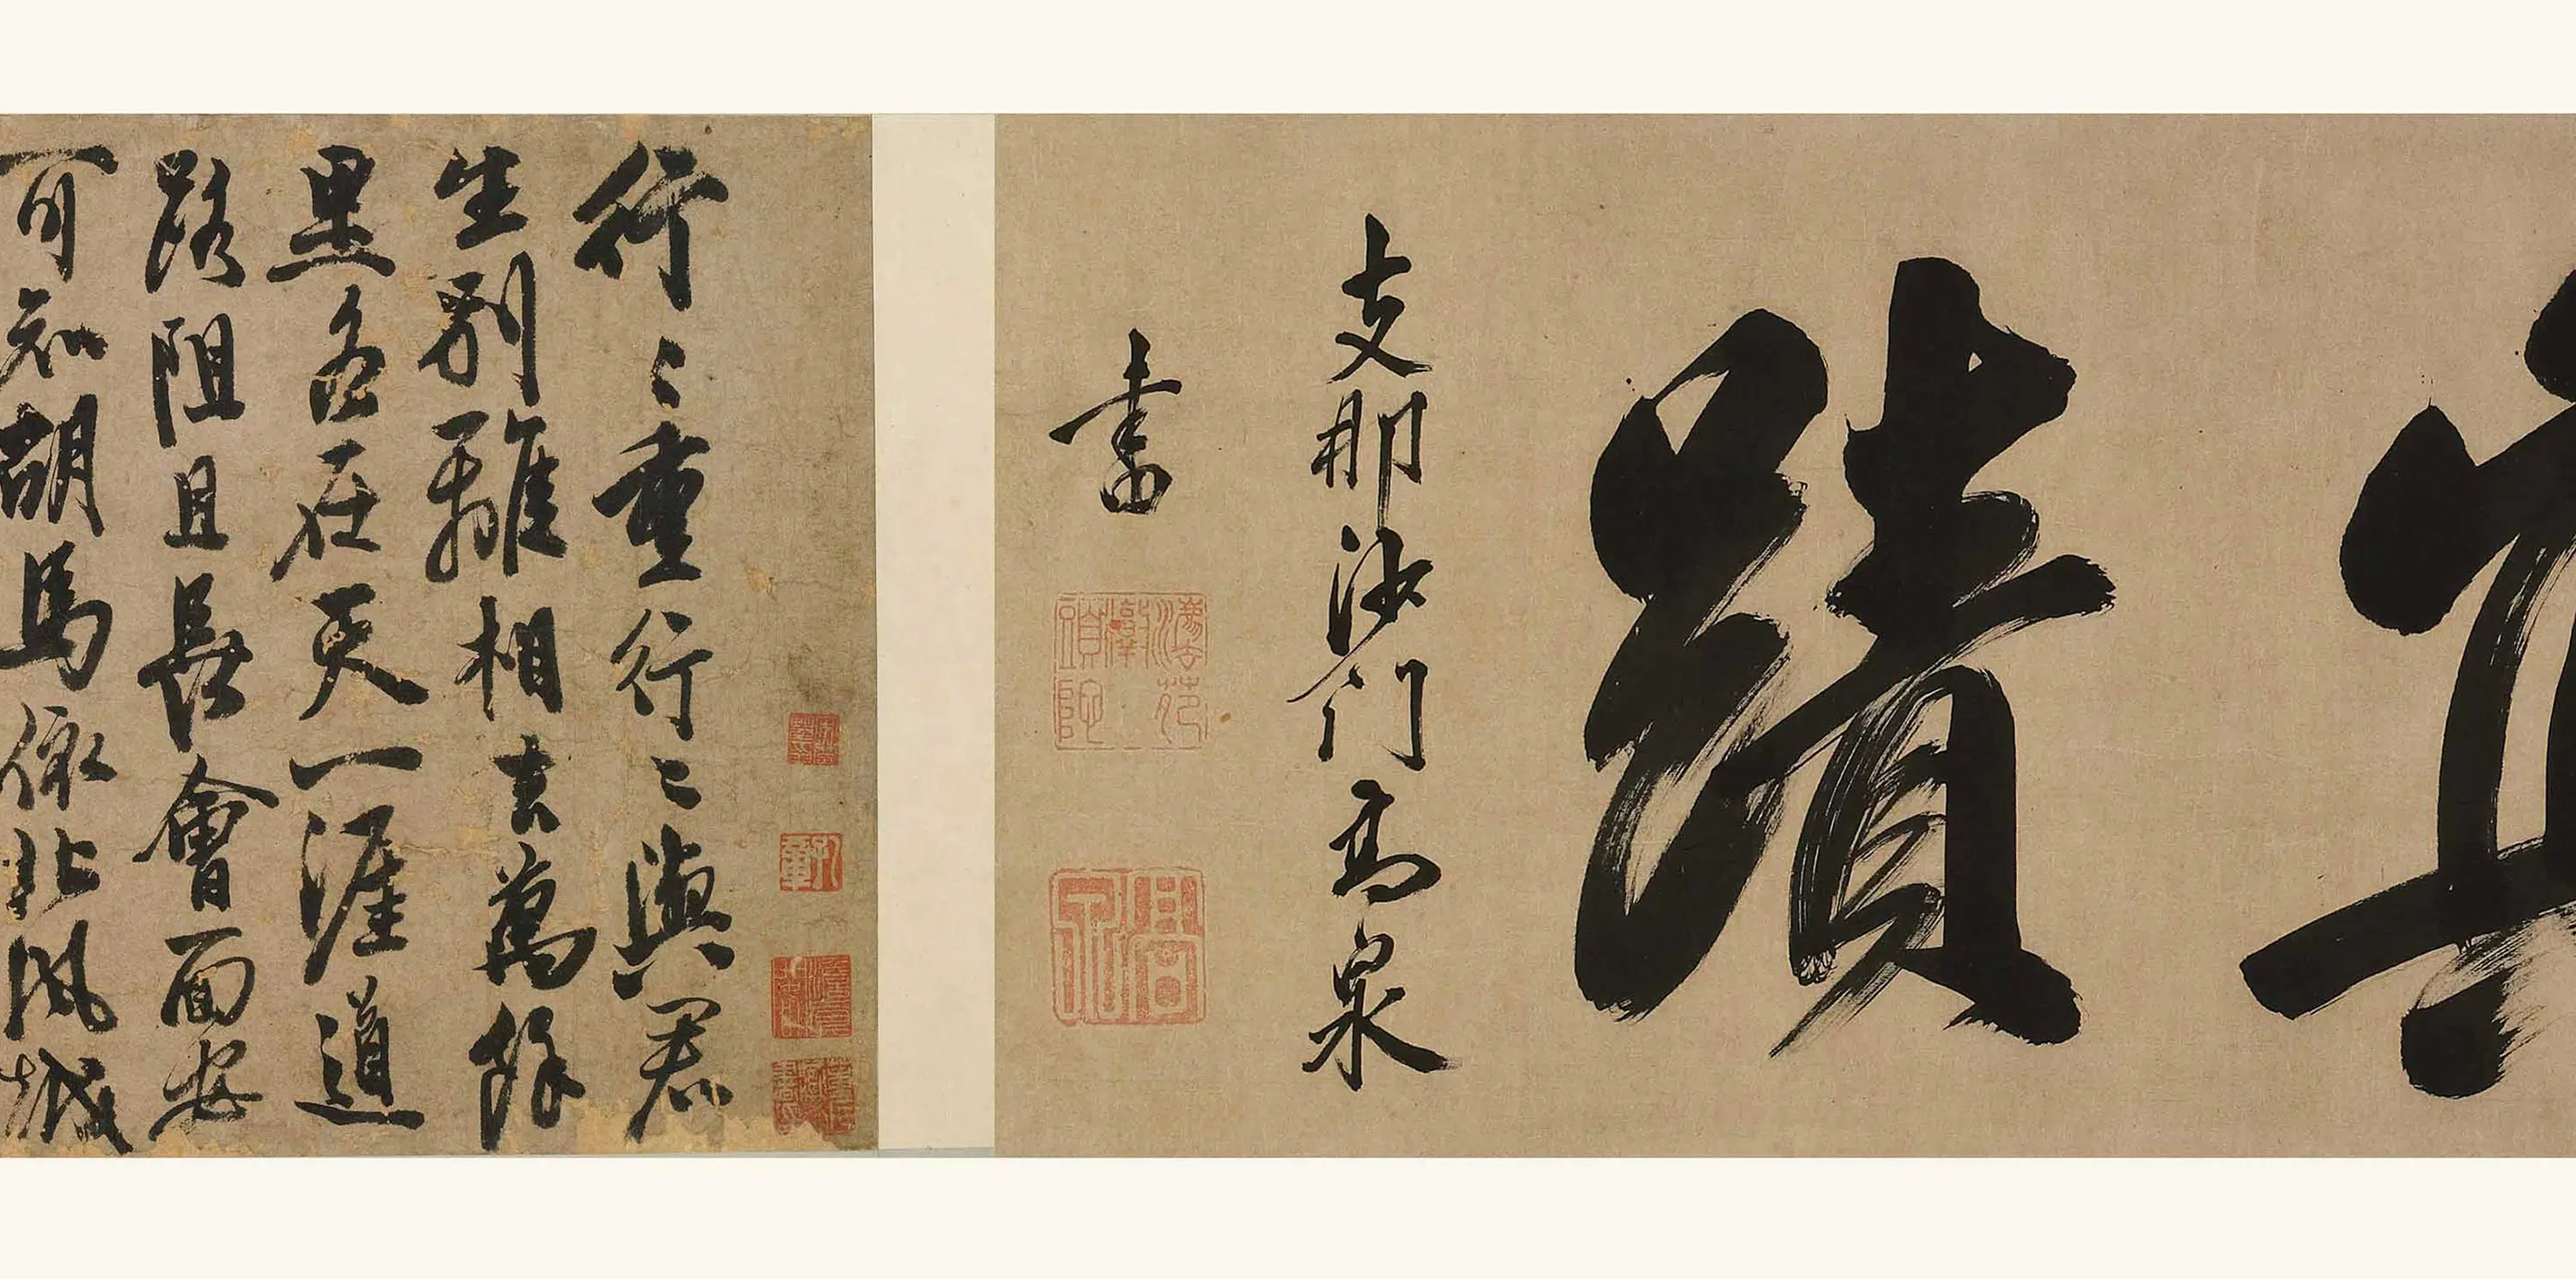 真蹟
支那沙門高泉
書
行〻重行〻與君
生別離相去萬餘
里各在天一涯道
路阻且長會面安
可知胡馬依北風越